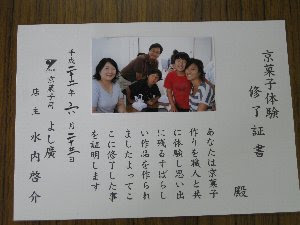 京菓子体験
修了証書
殿
あなたは京菓子
作りを職人と共
に体験し思い出
に残るすばらし
い作品を作られ
ました よってこ
こに修了した事
を証明します
平成二十二年 六月二十三日
京菓子司 よし廣
店主 水内啓介